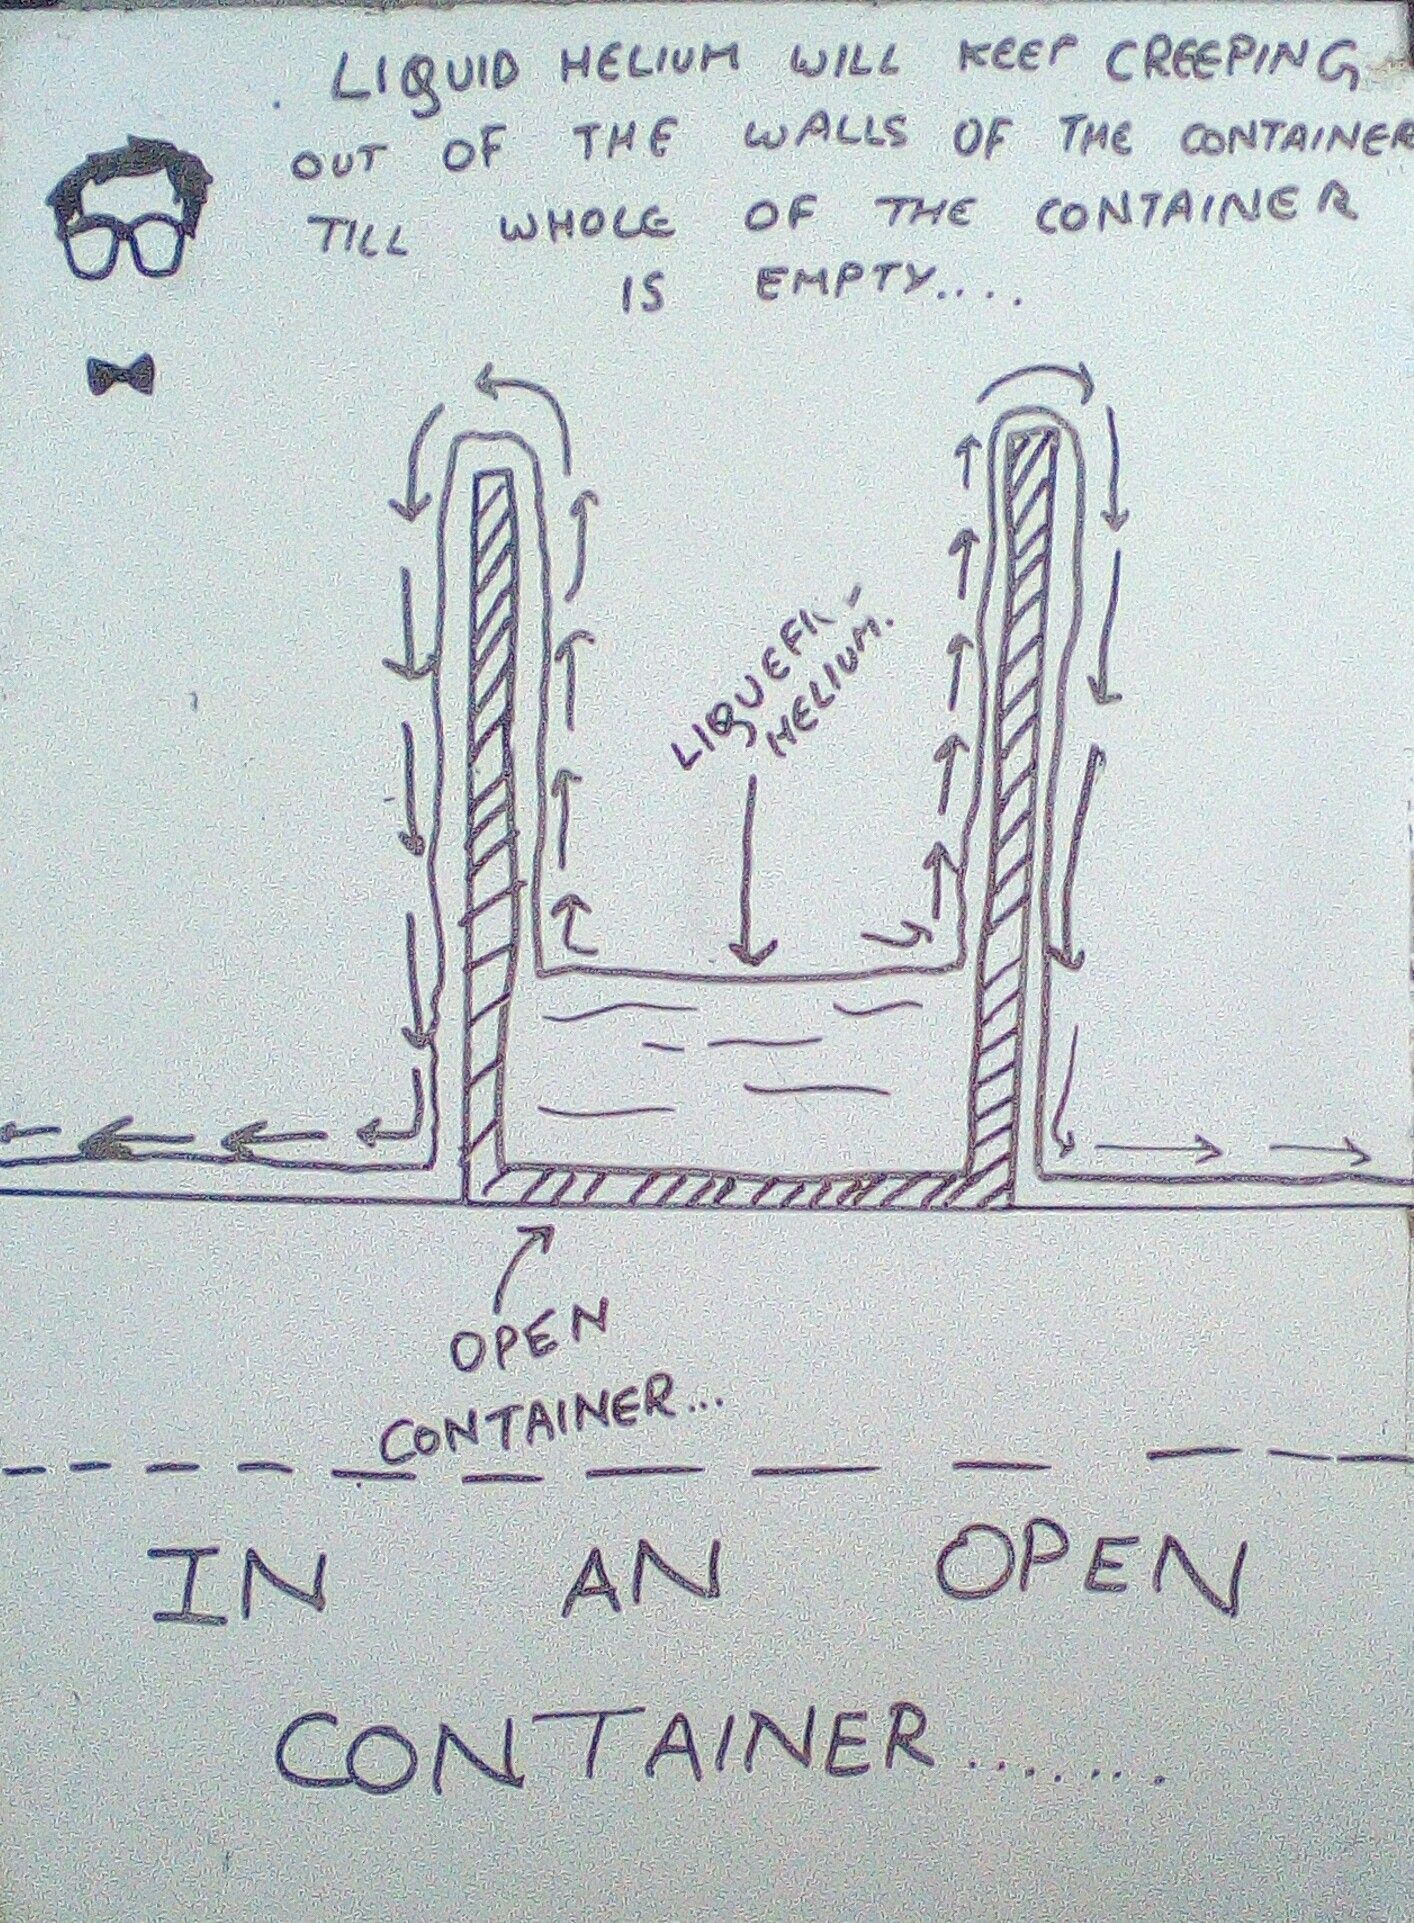 LIQUID HELIUM WILL KEEP CREEPING
OUT OF THE WALLS OF THE CONTAINER
TILL WHOLE OF THE CONTAINER
IS EMPTY....
HELIUM.
OPEN
CONTAINER...
IN AN OPEN
CONTAINER.......